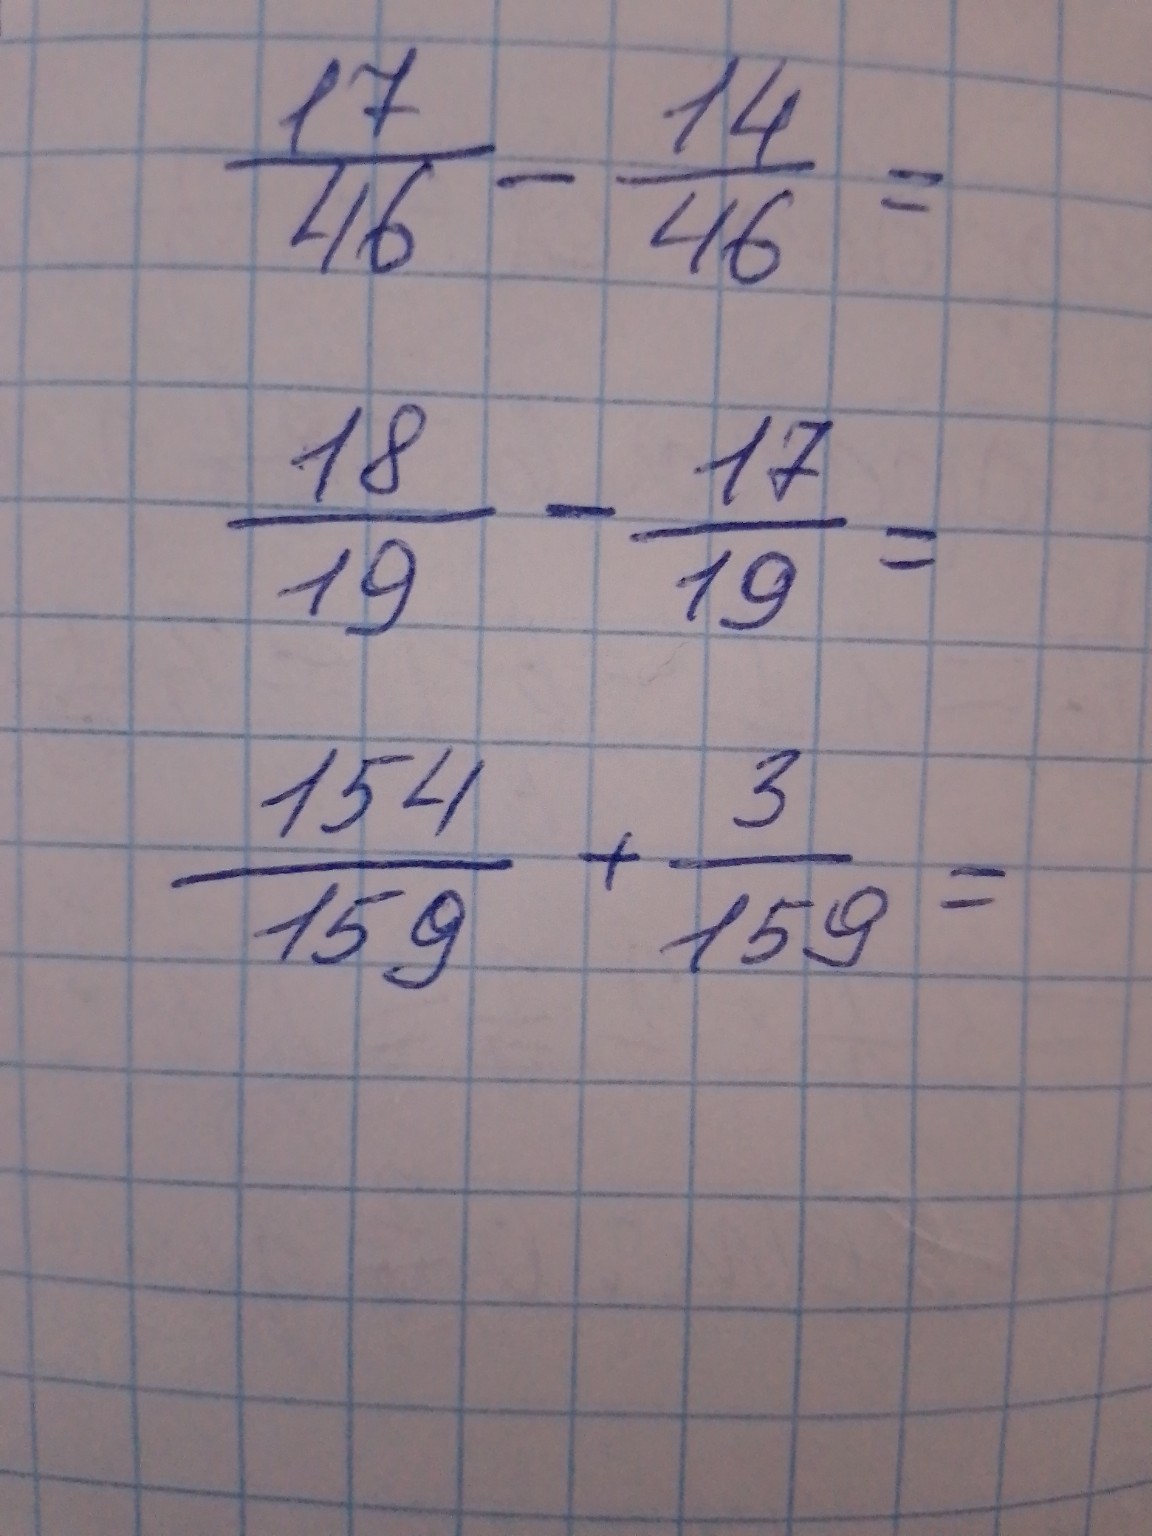 17/46 - 14/46 =
18/19 - 17/19 =
154/159 + 3/159 =